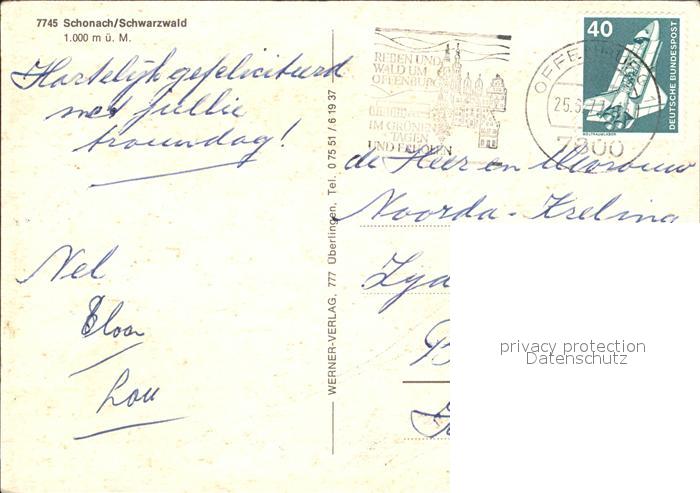 7745 Schonach/Schwarzwald
1.000 m ü. M.
Hartelijk gefeliciteerd
met jullie
trouwdag!
Nel
Eloor
Lou
WERNER-VERLAG, 777 Überlingen, Tel. 0 75 51 / 6 19 37
REBEN UND
WALD UM
OFFENBURG
IM GRÜNEN
TAGEN
UND ERHOLEN
OFFENBURG
25.6.77
7600
40
DEUTSCHE BUNDESPOST
WELTRAUMLABOR
de Heer en Mevrouw
Noorda - Kreling
privacy protection
Datenschutz